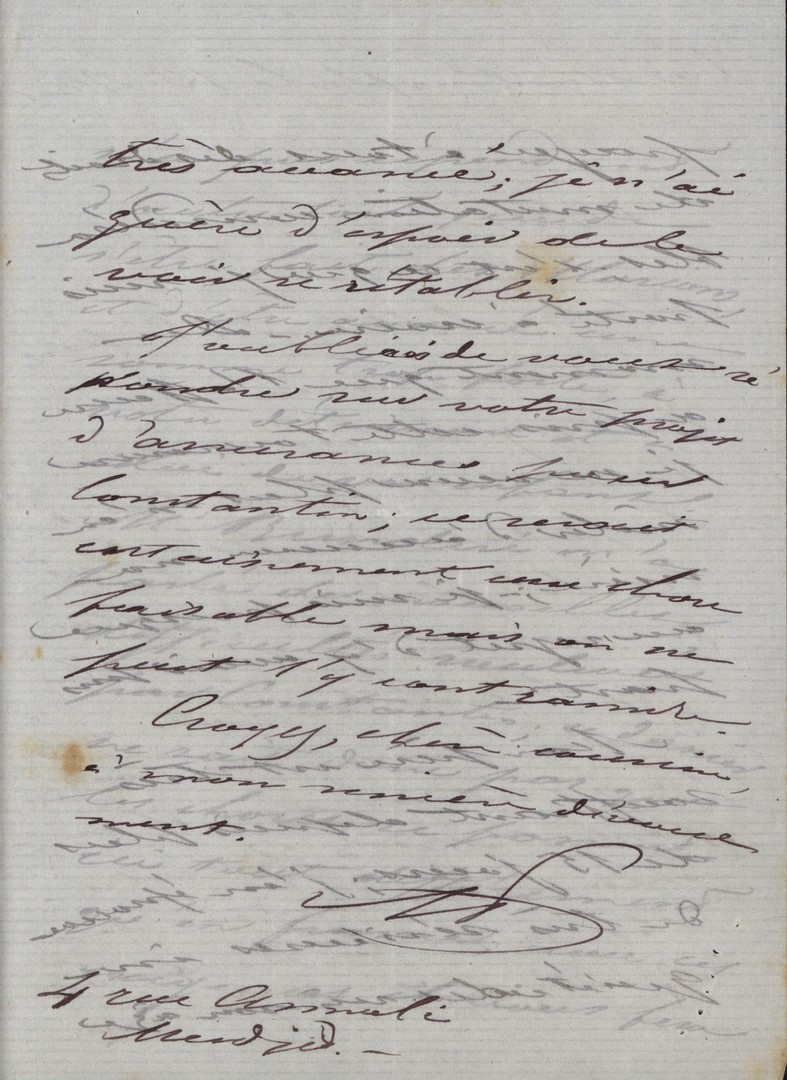 très avancé; je n'ai
guère d'espoir de le
voir se rétablir.
J'oubliais de vous ré
pondre sur votre projet
d'assurances pour
Constantin; ce serait
certainement une chose
faisable mais on ne
peut l'y contraindre.
Croyez, chère cousine,
à mon sincère dévoue
ment.
4 rue
Medjid. —